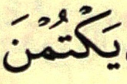 يَكْتُمْنَ